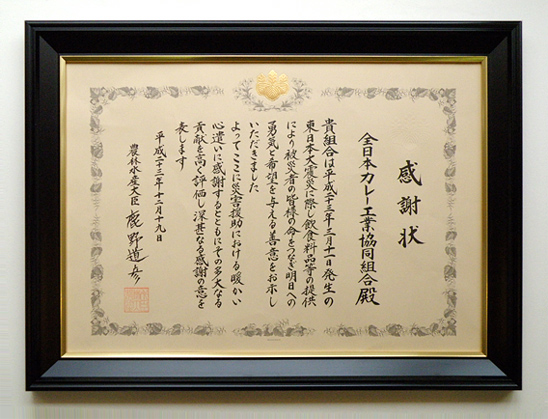 感謝状
全日本カレー工業協同組合殿
貴組合は平成二十三年三月十一日発生の
東日本大震災に際し飲食料品等の提供
により被災者の皆様の命をつなぎ明日への
勇気と希望を与える善意をお示し
いただきました
よってここに災害援助における暖かい
心遣いに感謝するとともにその多大なる
貢献を高く評価し深甚なる感謝の意を
表します
平成二十三年十二月十九日
農林水産大臣 鹿野道彦